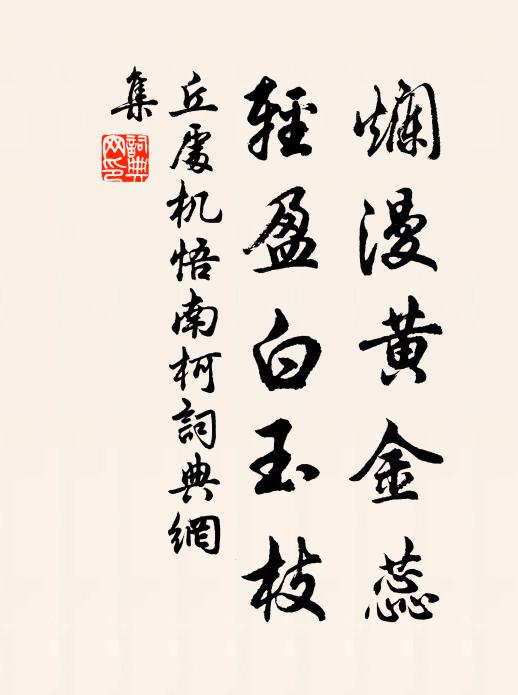 爛漫黄金蕊
輕盈白玉枝
丘處机悟南柯詞典網
集
詞典網印